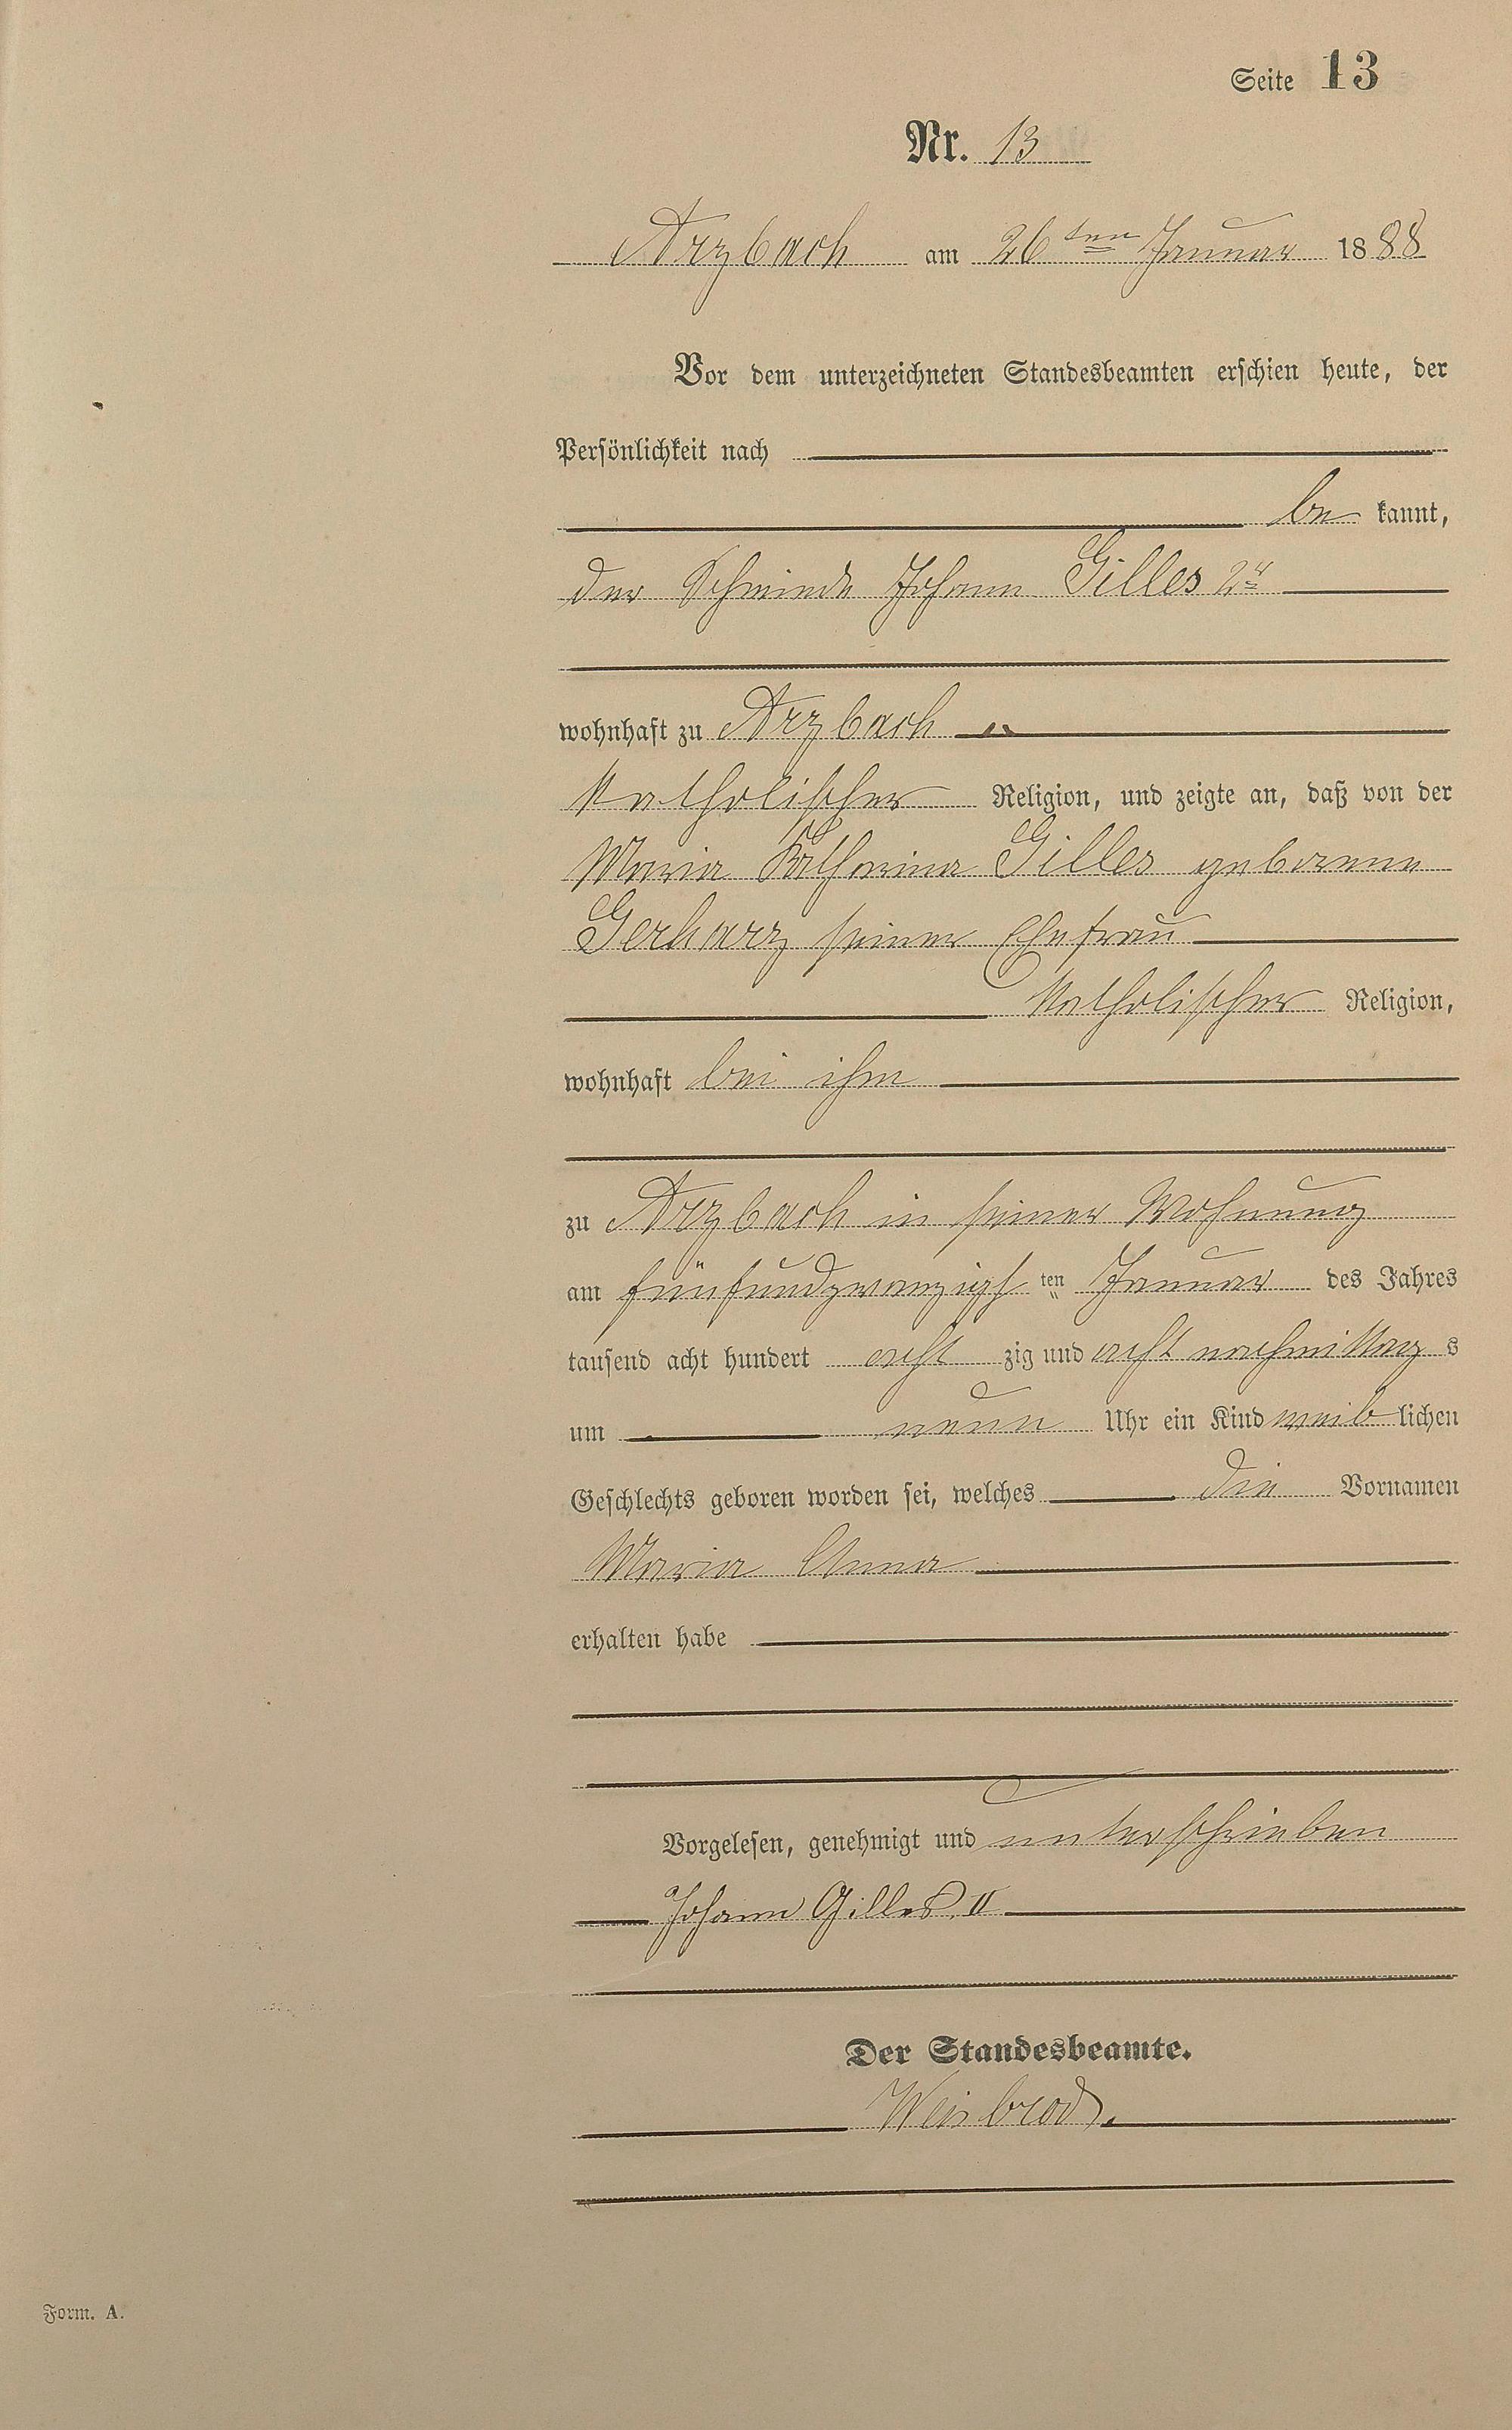 Seite 13
Nr. 13
Arzbach am 26ten Januar 1888
Vor dem unterzeichneten Standesbeamten erschien heute, der
Persönlichkeit nach
be kannt,
der Schmiede Johann Gilles 2r
wohnhaft zu Arzbach
katholischer Religion, und zeigte an, daß von der
Maria Katharina Gilles geborene
Gerharz seiner Ehefrau
katholischer Religion,
wohnhaft bei ihm
zu Arzbach in seiner Wohnung
am fünfundzwanzigs ten Januar des Jahres
tausend acht hundert acht zig und acht nachmittag s
um neun Uhr ein Kind weib lichen
Geschlechts geboren worden sei, welches die Vornamen
Maria Anna
erhalten habe
Vorgelesen, genehmigt und unterschrieben
Johann Gilles II
Der Standesbeamte.
Weisbrod.
Form. A.